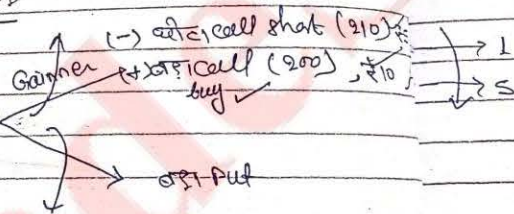 (-) छोटा call short (210) ₹5
Gainner (+) बड़ा call (200) , ₹10
buy ✓
→ 1
→ 5
बड़ा Put